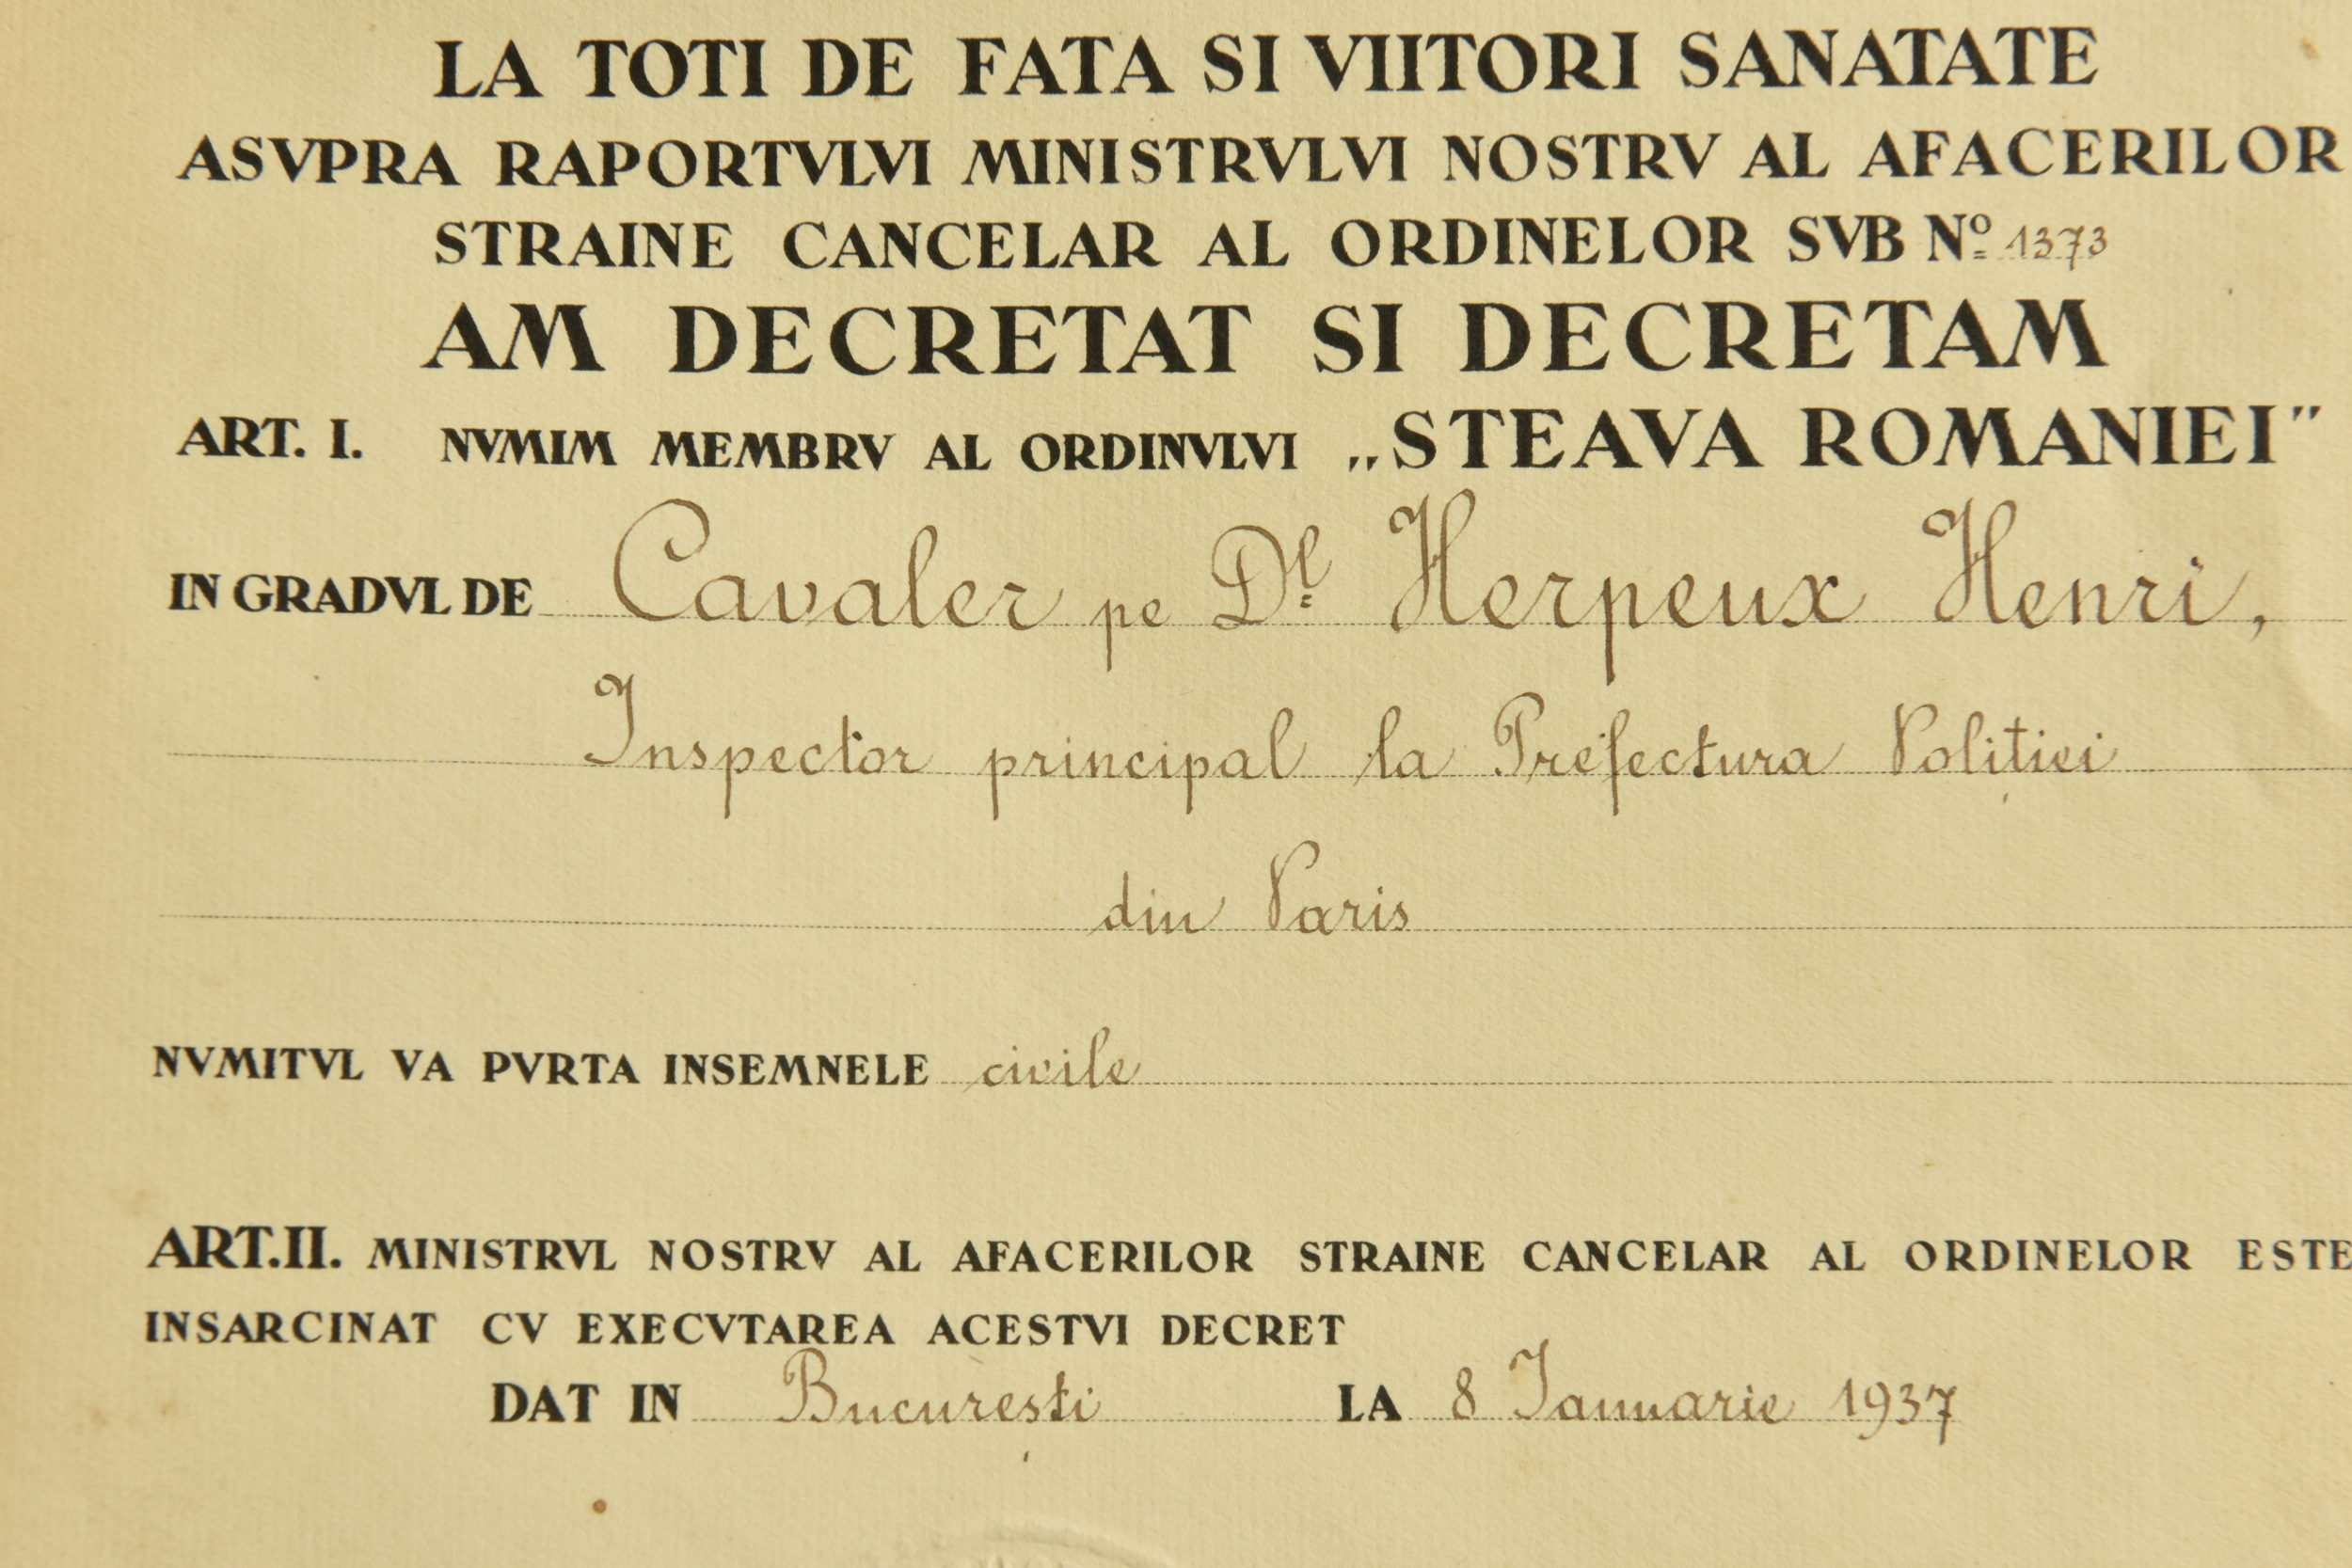 LA TOTI DE FATA SI VIITORI SANATATE
ASVPRA RAPORTVLVI MINISTRVLVI NOSTRV AL AFACERILOR
STRAINE CANCELAR AL ORDINELOR SVB Nº 1373
AM DECRETAT SI DECRETAM
ART. I. NVMIM MEMBRV AL ORDINVLVI „STEAVA ROMANIEI”
IN GRADVL DE Cavaler pe Dl Herpeux Henri,
Inspector principal la Prefectura Poliției
din Paris
NVMITVL VA PVRTA INSEMNELE civile
ART.II. MINISTRVL NOSTRV AL AFACERILOR STRAINE CANCELAR AL ORDINELOR ESTE
INSARCINAT CV EXECVTAREA ACESTVI DECRET
DAT IN București LA 8 Ianuarie 1937